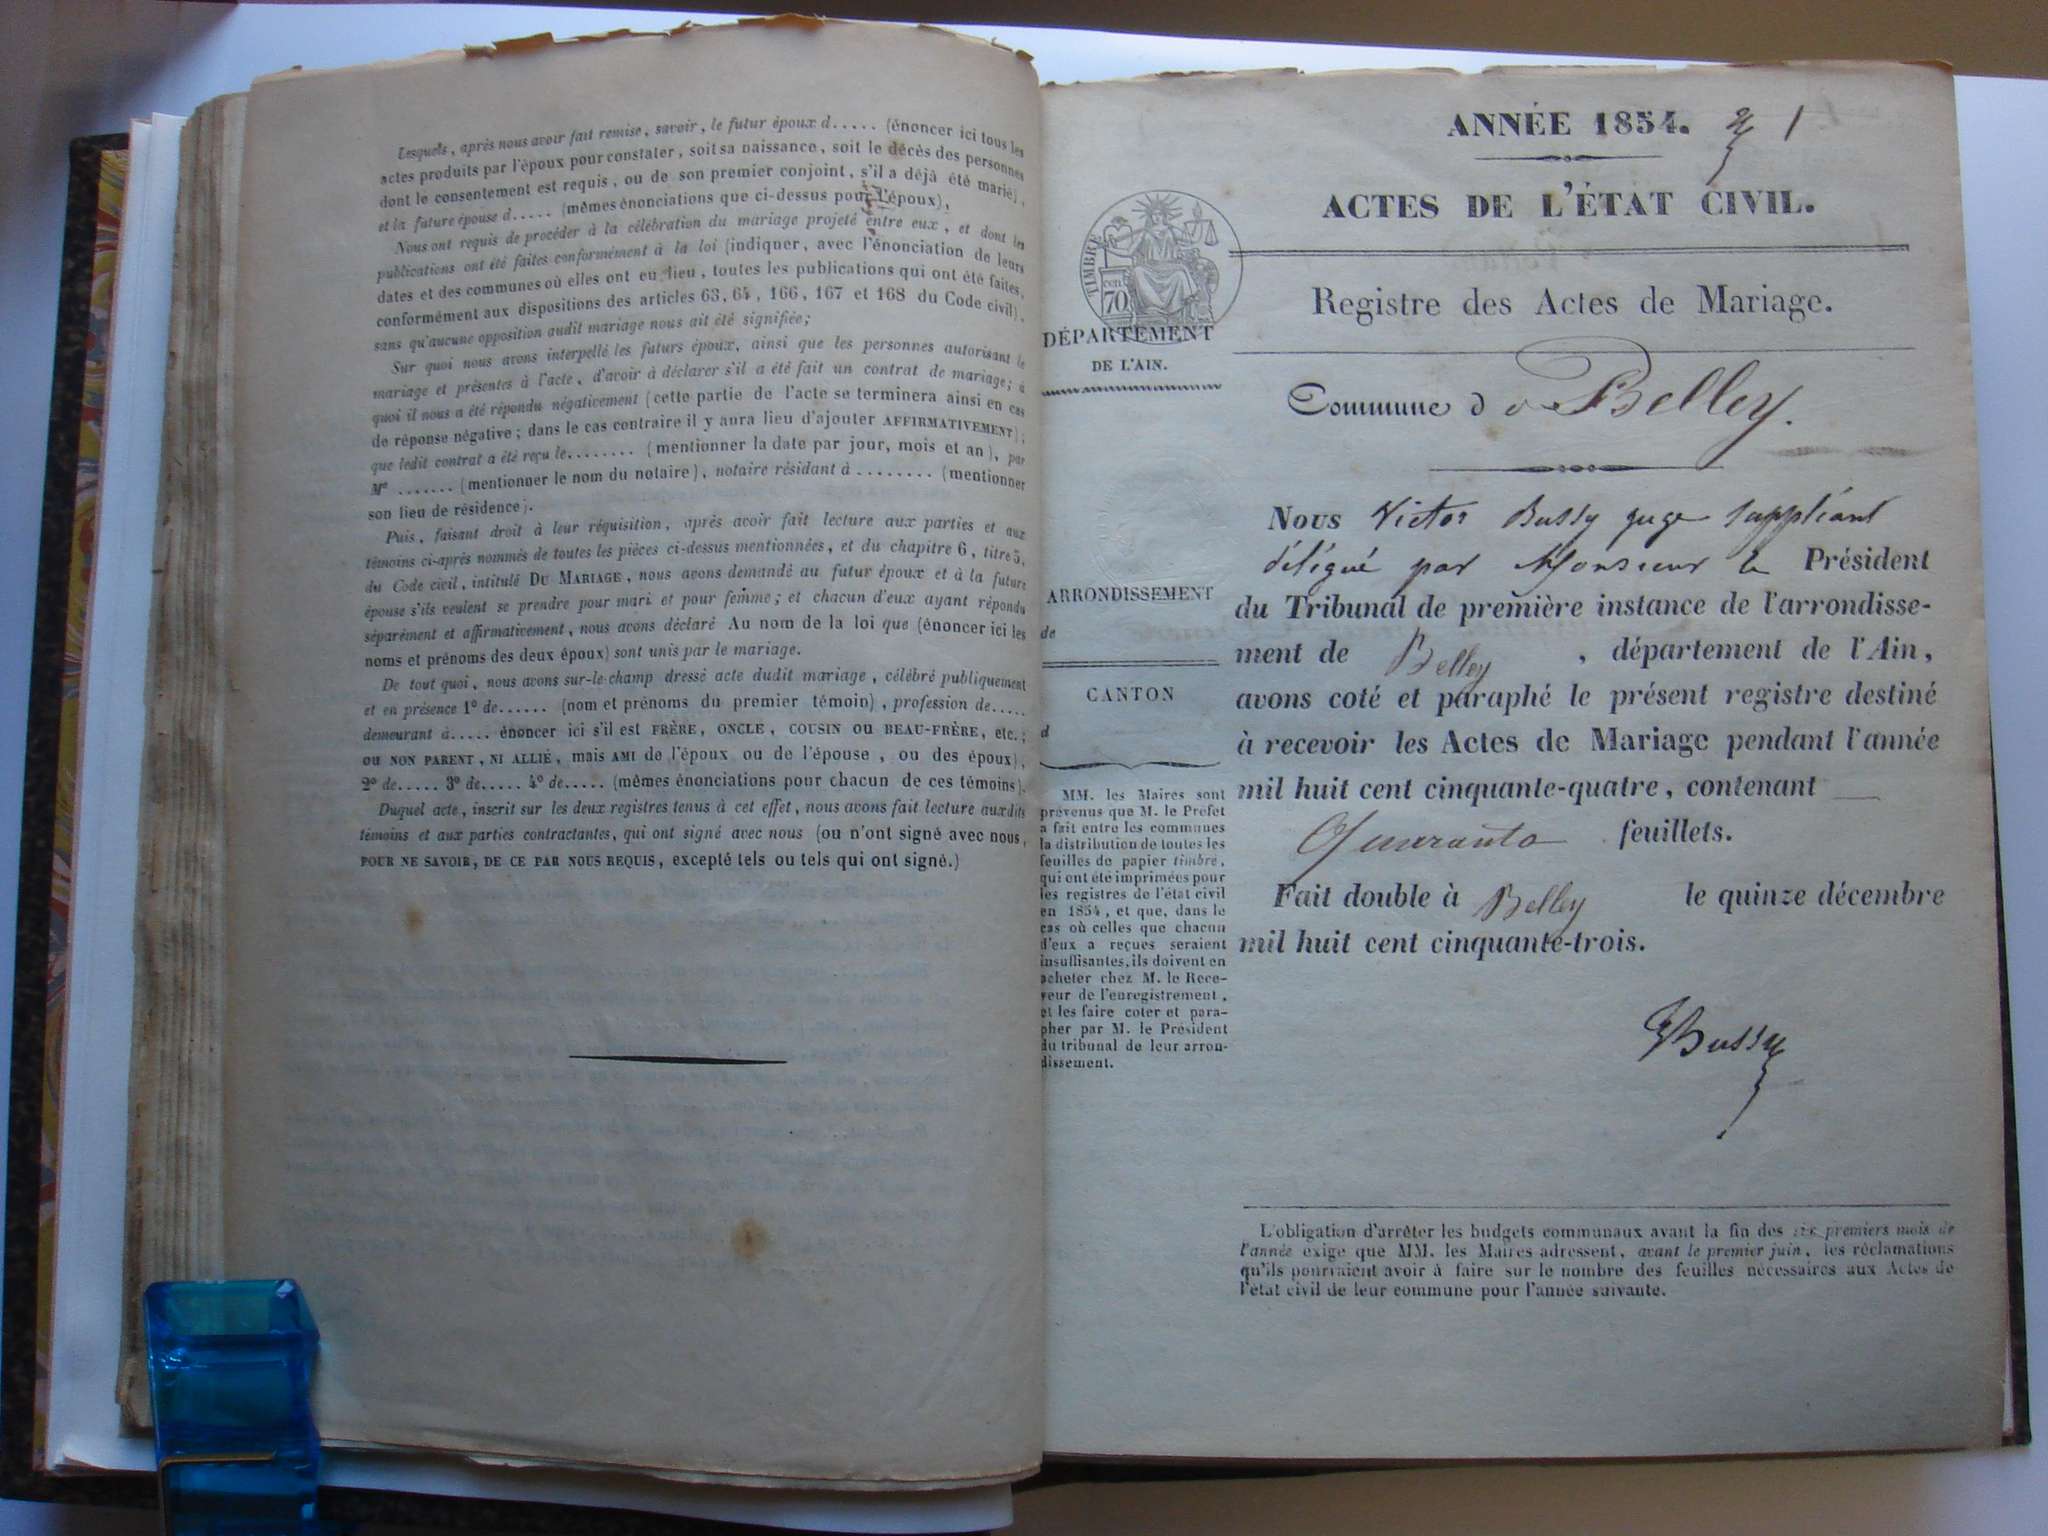 Lesquels, après nous avoir fait remise, savoir, le futur époux d..... (énoncer ici tous les
actes produits par l'époux pour constater, soit sa naissance, soit le décès des personnes
dont le consentement est requis, ou de son premier conjoint, s'il a déjà été marié),
et la future épouse d..... (mêmes énonciations que ci-dessus pour l'époux),
Nous ont requis de procéder à la célébration du mariage projeté entre eux, et dont les
publications ont été faites conformément à la loi (indiquer, avec l'énonciation de leurs
dates et des communes où elles ont eu lieu, toutes les publications qui ont été faites,
conformément aux dispositions des articles 63, 64, 166, 167 et 168 du Code civil),
sans qu'aucune opposition audit mariage nous ait été signifiée;
Sur quoi nous avons interpellé les futurs époux, ainsi que les personnes autorisant le
mariage et présentes à l'acte, d'avoir à déclarer s'il a été fait un contrat de mariage; à
quoi il nous a été répondu négativement (cette partie de l'acte se terminera ainsi en cas
de réponse négative; dans le cas contraire il y aura lieu d'ajouter AFFIRMATIVEMENT);
que ledit contrat a été reçu le........ (mentionner la date par jour, mois et an), par
Me ....... (mentionner le nom du notaire), notaire résidant à ........ (mentionner
son lieu de résidence).
Puis, faisant droit à leur réquisition, après avoir fait lecture aux parties et aux
témoins ci-après nommés de toutes les pièces ci-dessus mentionnées, et du chapitre 6, titre 5,
du Code civil, intitulé DU MARIAGE, nous avons demandé au futur époux et à la future
épouse s'ils veulent se prendre pour mari et pour femme; et chacun d'eux ayant répondu
séparément et affirmativement, nous avons déclaré Au nom de la loi que (énoncer ici les
noms et prénoms des deux époux) sont unis par le mariage.
De tout quoi, nous avons sur-le-champ dressé acte dudit mariage, célébré publiquement
et en présence 1º de...... (nom et prénoms du premier témoin), profession de.....
demeurant à..... énoncer ici s'il est FRÈRE, ONCLE, COUSIN OU BEAU-FRÈRE, etc.;
OU NON PARENT, NI ALLIÉ, mais AMI de l'époux ou de l'épouse, ou des époux),
2º de..... 3º de..... 4º de..... (mêmes énonciations pour chacun de ces témoins).
Duquel acte, inscrit sur les deux registres tenus à cet effet, nous avons fait lecture auxdits
témoins et aux parties contractantes, qui ont signé avec nous (ou n'ont signé avec nous,
POUR NE SAVOIR, DE CE PAR NOUS REQUIS, excepté tels ou tels qui ont signé.)
ANNÉE 1854. 1
ACTES DE L'ÉTAT CIVIL.
Registre des Actes de Mariage.
TIMBRE
cen.
70
DÉPARTEMENT
DE L'AIN.
Commune de Belley.
Nous Victor Bussy juge suppléant
délégué par Monsieur le Président
du Tribunal de première instance de l'arrondisse-
ment de Belley, département de l'Ain,
avons coté et paraphé le présent registre destiné
à recevoir les Actes de Mariage pendant l'année
mil huit cent cinquante-quatre, contenant
Quarante feuillets.
Fait double à Belley le quinze décembre
mil huit cent cinquante-trois.
Bussy
ARRONDISSEMENT
de
CANTON
d
MM. les Maires sont
prévenus que M. le Préfet
a fait entre les communes
la distribution de toutes les
feuilles de papier timbré,
qui ont été imprimées pour
les registres de l'état civil
en 1854, et que, dans le
cas où celles que chacun
d'eux a reçues seraient
insuffisantes, ils doivent en
acheter chez M. le Rece-
veur de l'enregistrement,
et les faire coter et para-
pher par M. le Président
du tribunal de leur arron-
dissement.
L'obligation d'arrêter les budgets communaux avant la fin des six premiers mois de
l'année exige que MM. les Maires adressent, avant le premier juin, les réclamations
qu'ils pourraient avoir à faire sur le nombre des feuilles nécessaires aux Actes de
l'état civil de leur commune pour l'année suivante.